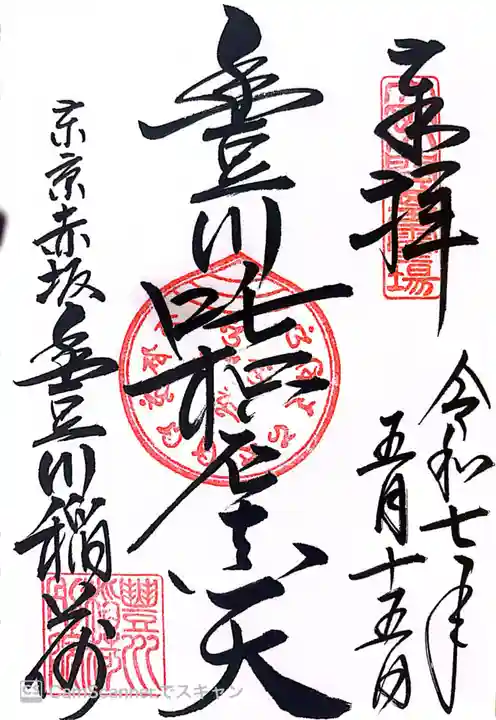 奉拝
令和七年
五月十五日
豊川吒枳尼真天
東京赤坂豊川稲荷
CamScannerでスキャン